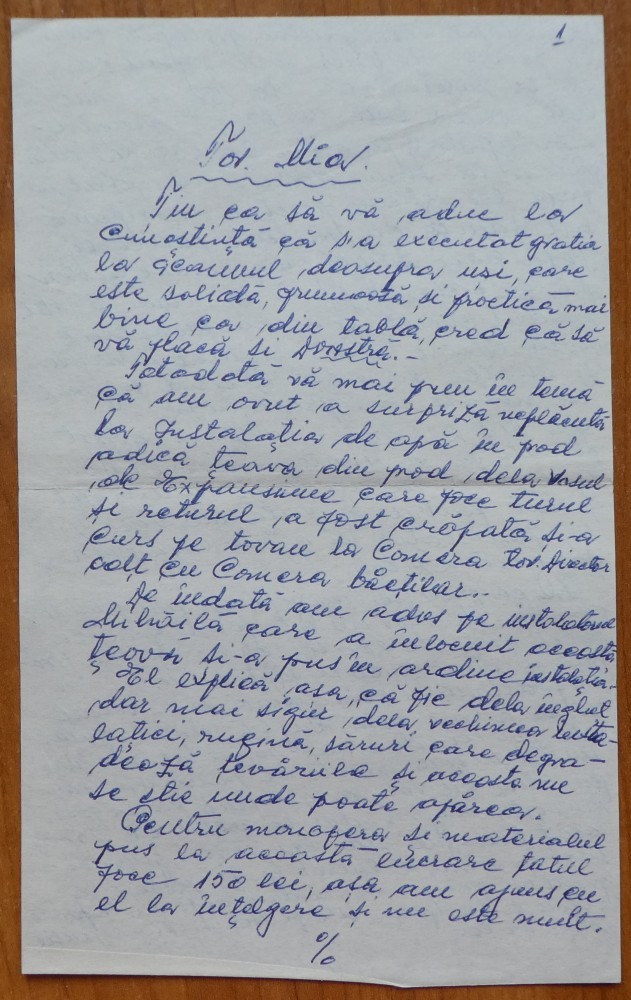 1
Tov. Mia.
Țin ca să vă aduc la
cunoștință că s'a executat gratia
la geamul deasupra uși, care
este solidă, frumoasă, și practică mai
bine ca din tablă, cred că să
vă placă si Dvoastră.-
Totodată vă mai pun în temă
că am avut a surpriză neplăcută
la Instalația de apă în pod
adică țeava din pod dela vasul
de Expansiune care face turul
și returul, a fost crăpată, și-a
curs pe tavan la Camera tov. Director
colț cu Camera băeților..
De îndată am adus pe instalatorul
Mihăilă care a înlocuit această
țeavă si-a pus în ordine instalația.
El explică așa, că fie dela înghiț
dar mai sigur dela vechimea insta-
lației, rugină, săruri care degra-
dează țevăriile și aceasta nu
se știe unde poate apărea.
Pentru manopera și materialul
pus la această lucrare totul
face 150 lei, așa am ajuns cu
el la înțălgere și nu este mult.
%